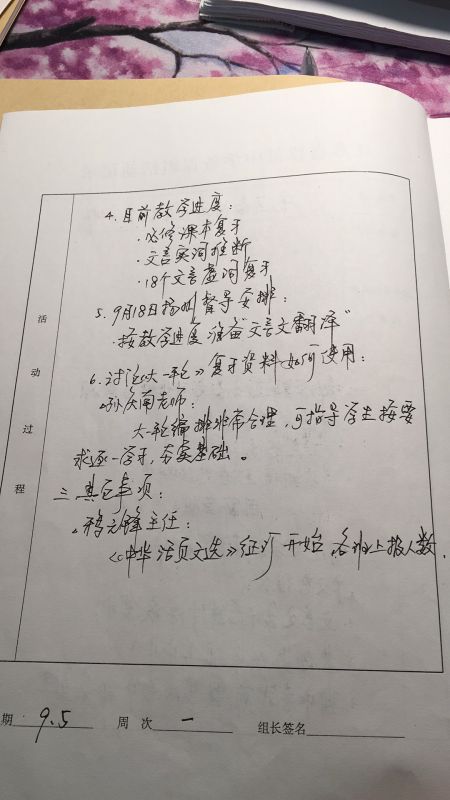 4. 目前教学进度：
·必修课本复习
·文言实词推断
·18个文言虚词复习
5. 9月18日扬州督导安排：
·按教学进度准备"文言文翻译"
6. 讨论《大一轮》复习资料如何使用：
孙庆南老师：
大一轮编排非常合理，可指导学生按要
求逐一学习，夯实基础。
三. 其它事项：
主任：
《中华活页文选》征订开始，各班上报人数.
活
动
过
程
期 9.5 周次 一 组长签名